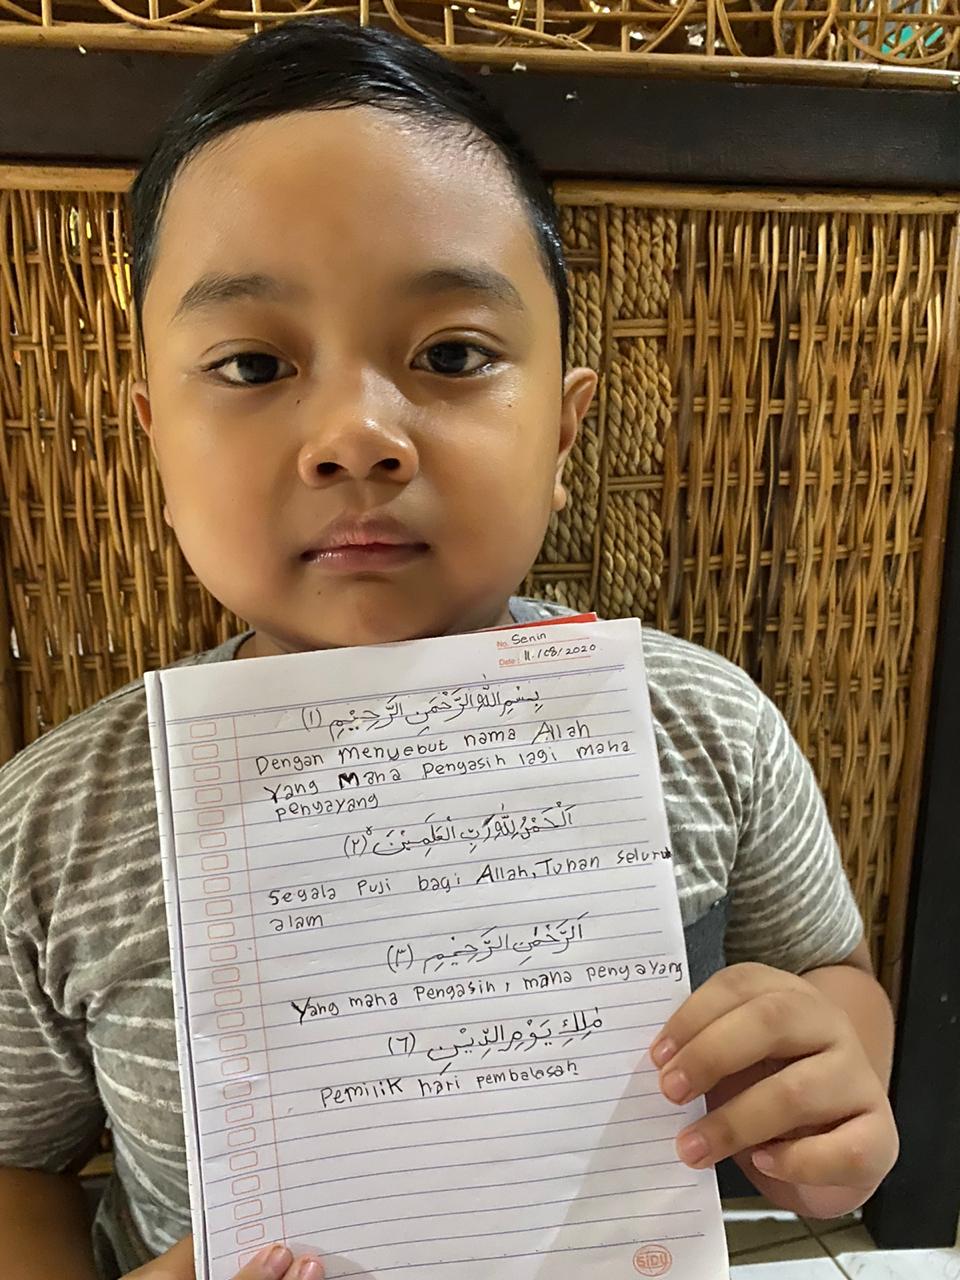 No. Senin
Date : 11 / 08 / 2020
بِسْمِ اللّٰهِ الرَّحْمٰنِ الرَّحِيْمِ (١)
Dengan menyebut nama Allah
Yang Maha Pengasih lagi maha
penyayang
اَلْحَمْدُ لِلّٰهِ رَبِّ الْعٰلَمِيْنَۙ (٢)
Segala Puji bagi Allah, Tuhan seluruh
alam
اَلرَّحْمٰنِ الرَّحِيْمِ (٣)
Yang maha Pengasih, maha penyayang
مٰلِكِ يَوْمِ الدِّيْنِ (٦)
Pemilik hari pembalasah
SIDU